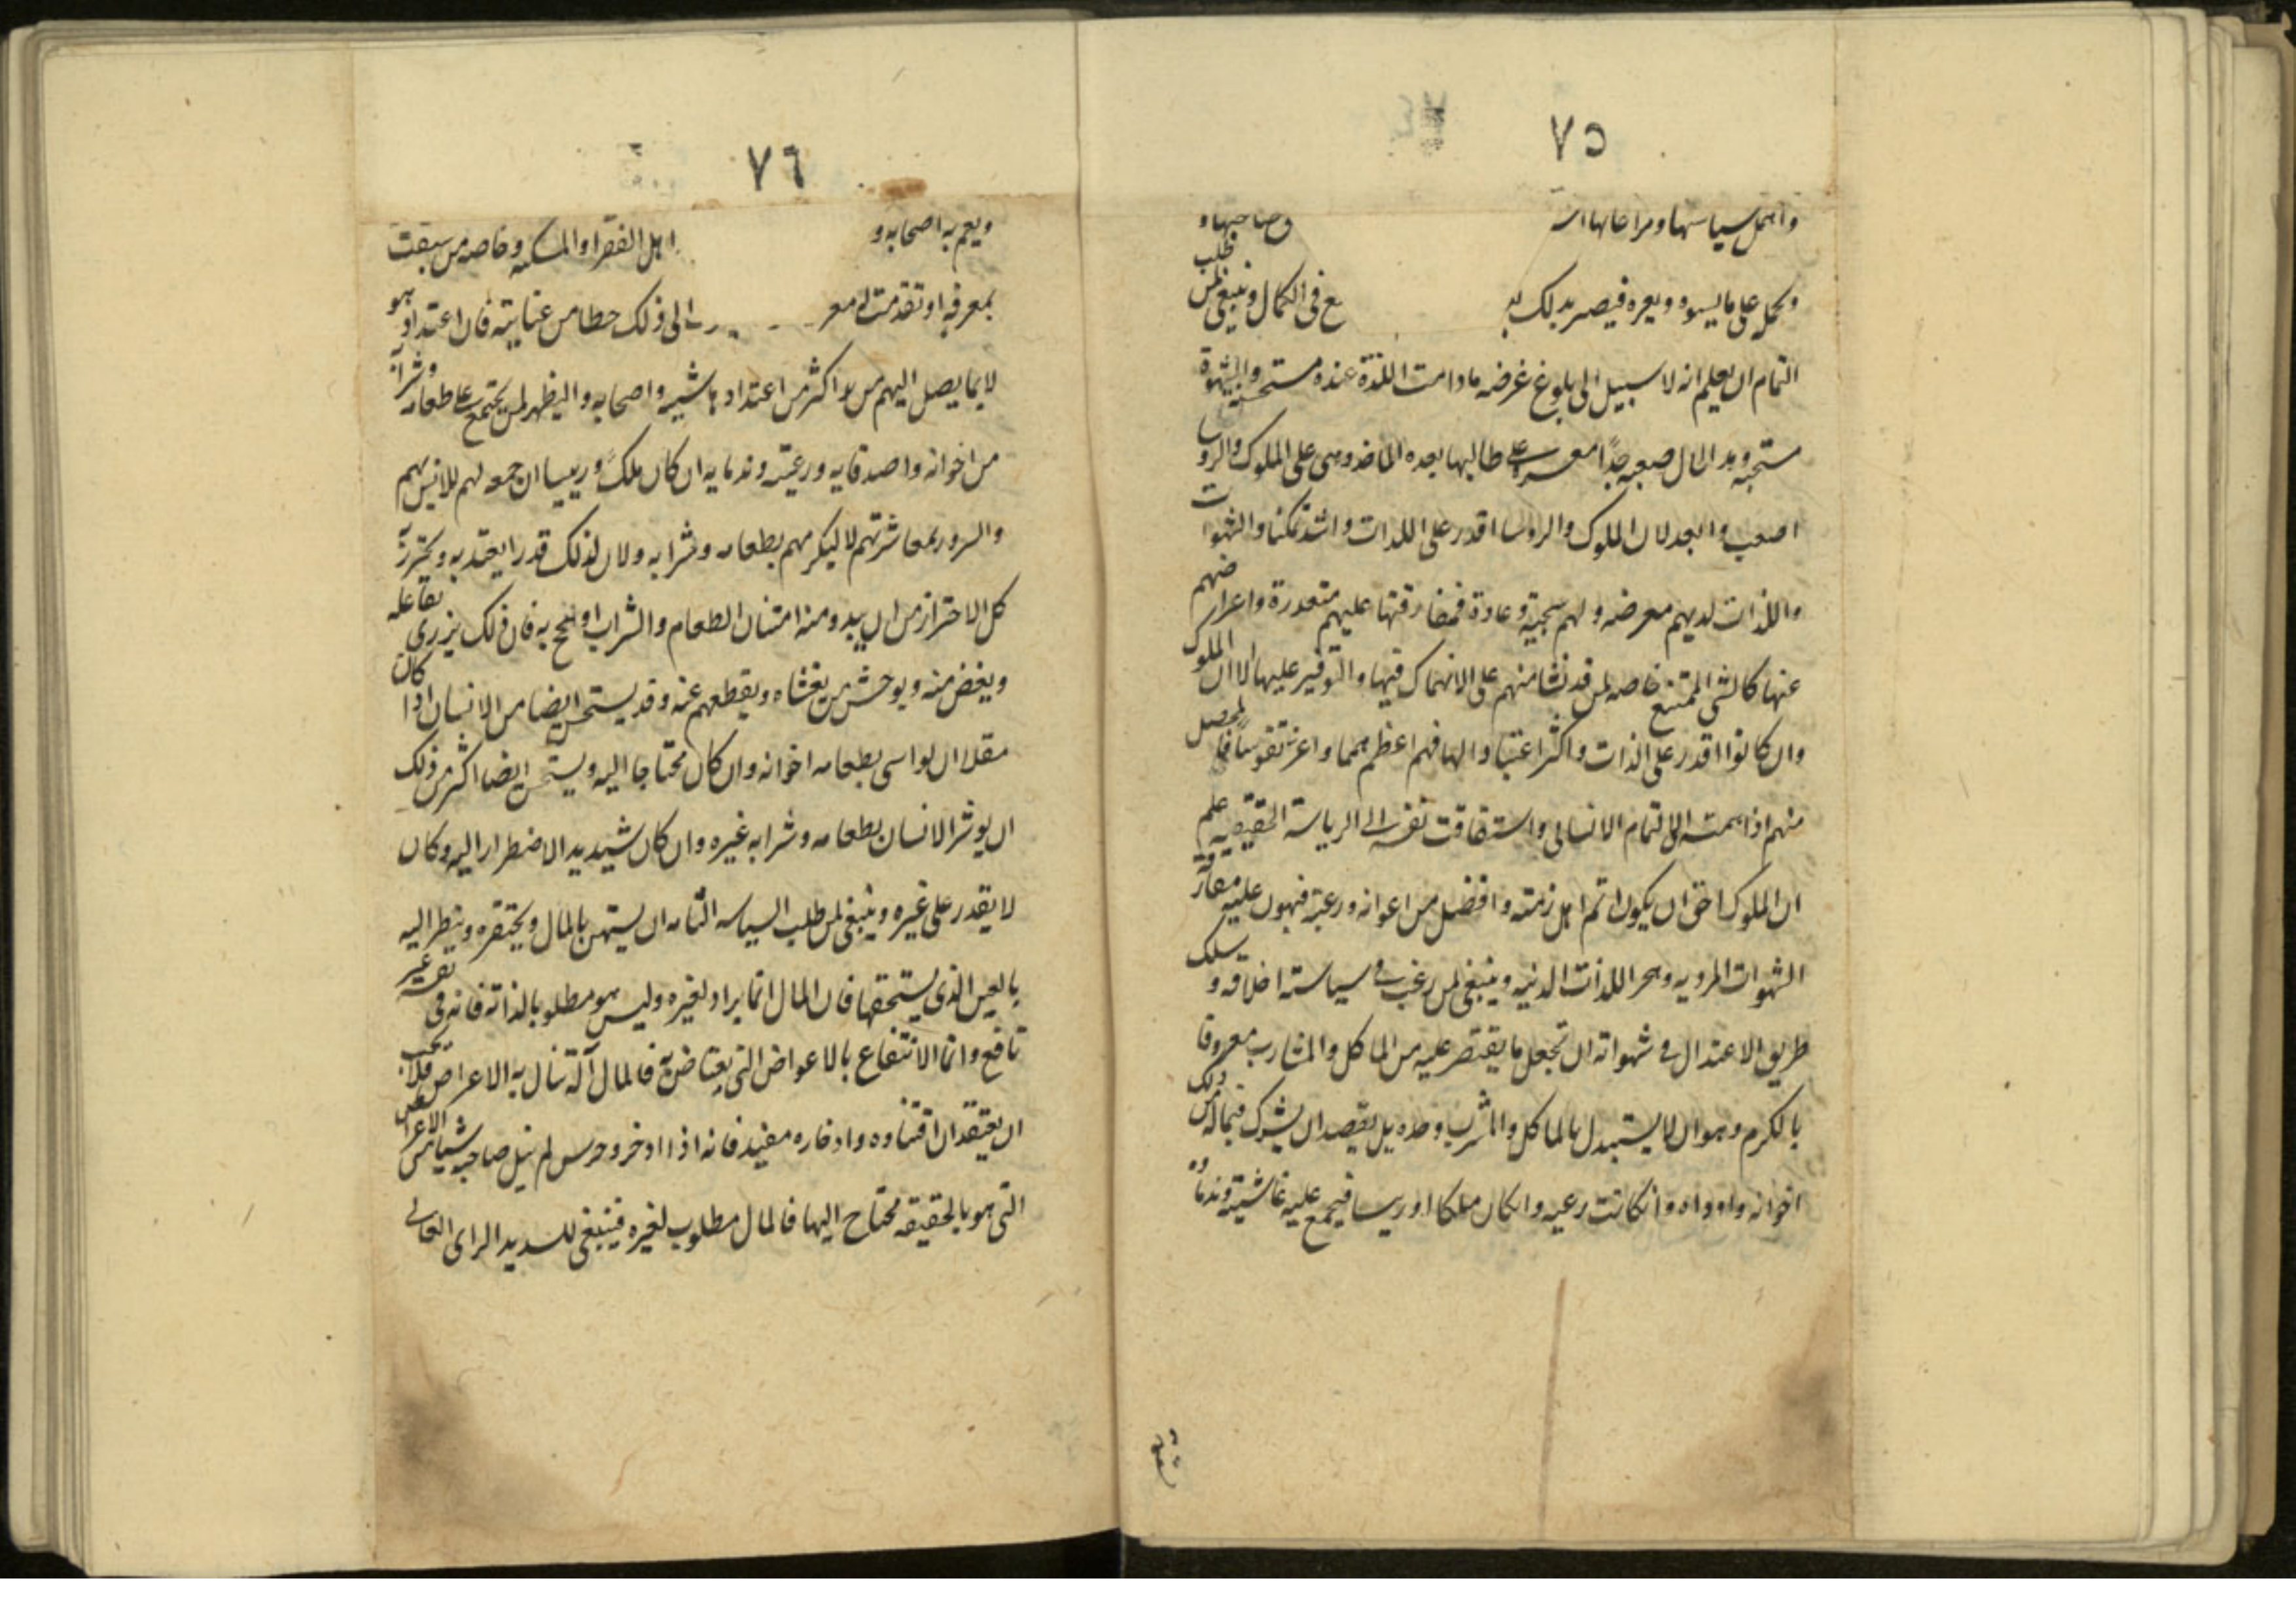 ٧٥
واهمل سياستها ومراعاتها
صاحبها و
طلب
ويحمل على ما يسوه ويعره فيصير بذلك
في الكمال وينبغي لمن
التمام ان يعلم انه لا سبيل الى بلوغ غرضه ما دامت اللذة عنده مستحسنه والشهوة
مستحبه وهذا الحال صعبه جدًا على طالبها بعيده الماخذ وهى على الملوك والروسا
اصعب وابعد لان الملوك والروسا اقدر على اللذات واشد تمكنا والشهوات
واللذات لديهم معرضه ولهم سجية وعادة فمفارقتها عليهم متعذرة واعراضهم
عنها كالشى الممتنع خاصه لمن قد نشا منهم على الانهماك فيها والتوفير عليها الا ان الملوك
وان كانوا اقدر على الذات واكثر اعتيادا لها فهم اعظم همما واعز نفوسا فالمحصل
منهم اذا همت الى التمام الانسانى واشتاقت نفسه الى الرياسة الحقيقيه علم
ان الملوك احق ان يكون اتم اهل زمنه وافضل من اعوانه ورعيته فيهون عليه مفارقة
الشهوات الردية وهجر اللذات الدنيه وينبغى لمن رغب فى سياسة اخلاقه و يسلك
طريق الاعتدال فى شهواته ان تجعل ما يقتصر عليه من الماكل والمشارب معروفا
بالكرم وهو ان لا يستبدل بالماكل والمشرب وحده بل يقصد ان يشرك فيما له من ذلك
اخوانه واوداه وان كانت رعيه وان كان ملكا او ريسا فيجمع عليه غاشيته وندماه
٧٦
ويعم به اصحابه و
اهل الفقر والمسكنه وخاصه من سبقت
بمعرفه او تقدمت له معر
الى ذلك حظا من عنايته فان اعتداده هو
لا بما يصل اليهم من اكثر من اعتداد شيه واصحابه واليظهر لمن يجتمع على طعامه وشرابه
من اخوانه واصدقايه ورعيته وندمايه ان كان ملكًا وريسا ان جمعه لهم للانس بهم
والسرور بمعاشرتهم لا ليكرمهم بطعامه وشرابه ولا ان لذلك قدرا يعتد به ويحترز
كل الاحتراز من ان يبدو منه امتنان الطعام والشراب او يتبجح به فان ذلك يزرى بفاعله
ويغض منه ويوحش من يغشاه ويقطعهم عنه وقد يستحسن ايضا من الانسان اذا كان
مقلا ان يواسى بطعامه اخوانه وان كان محتاجا اليه ويستحسن ايضا اكثر من ذلك
ان يوثر الانسان بطعامه وشرابه غيره وان كان شديد الاضطرار اليه وكان
لا يقدر على غيره وينبغى لمن طلب السياسه التامه ان يستهين بالمال ويحتقره وينظر اليه
بالعين الذى يستحقها فان المال انما يراد لغيره وليس هو مطلوبا لذاته فانه فى نفسه غير
نافع وانما الانتفاع بالاعواض التى يعتاض به فالمال آلة تنال به الاعراض فلا يجب
ان يعتقد ان اقتناوه وادخاره مفيد فانه اذا ادخر وحرس لم ينيل صاحبه شيا من الاعراض
التى هو بالحقيقه محتاج اليها فالمال مطلوب لغيره فينبغى للسديد الراى العالى